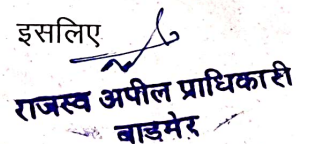 इसलिए
राजस्व अपील प्राधिकारी
बाडमेर